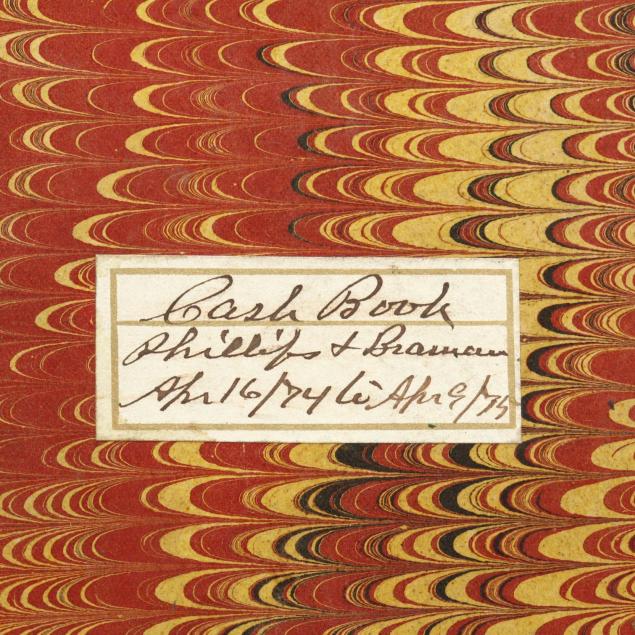 Cash Book
Phillips & Braman
Apr 16/74 to Apr 9/75